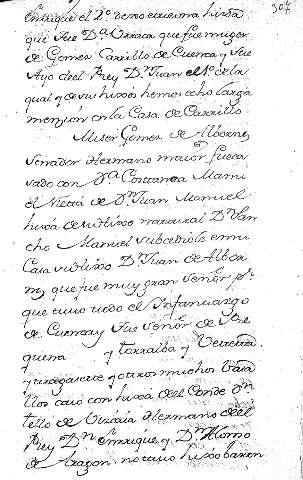 307
Enrrique el 2º
que fue Dª Urraca que fue muger
de Gomez Carrillo de Cuenca y fue
Ayo deel Rey Dn Juan el 2º de la
qual y de sus hixos hemos echo larga
menzion en la Casa de Carrillo
Miser Gomez de Albornoz
senador hermano maior fue ca
sado con Dª Constanza Manu
el Nieta de Dn Juan Manuel
hixa de su hixo natural Dn San
cho Manuel subcediole en su
Casa su hixo Dn Juan de Albor
noz que fue muy gran señor pr
que tuvo todo el Infantazgo
de Cuenca y fue señor de
y Torralba y Beteta
y otros muchos Vasa
llos caso con hixa deel Conde Dn
tello de Vizcaia hermano deel
Rey Dn Enrrique y Dn Alonso
de Aragon no tuvo hixo baron